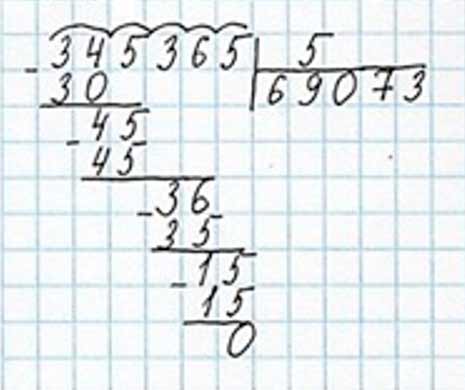 -345365 5
30 69073
-45
45
-36
35
-15
15
0